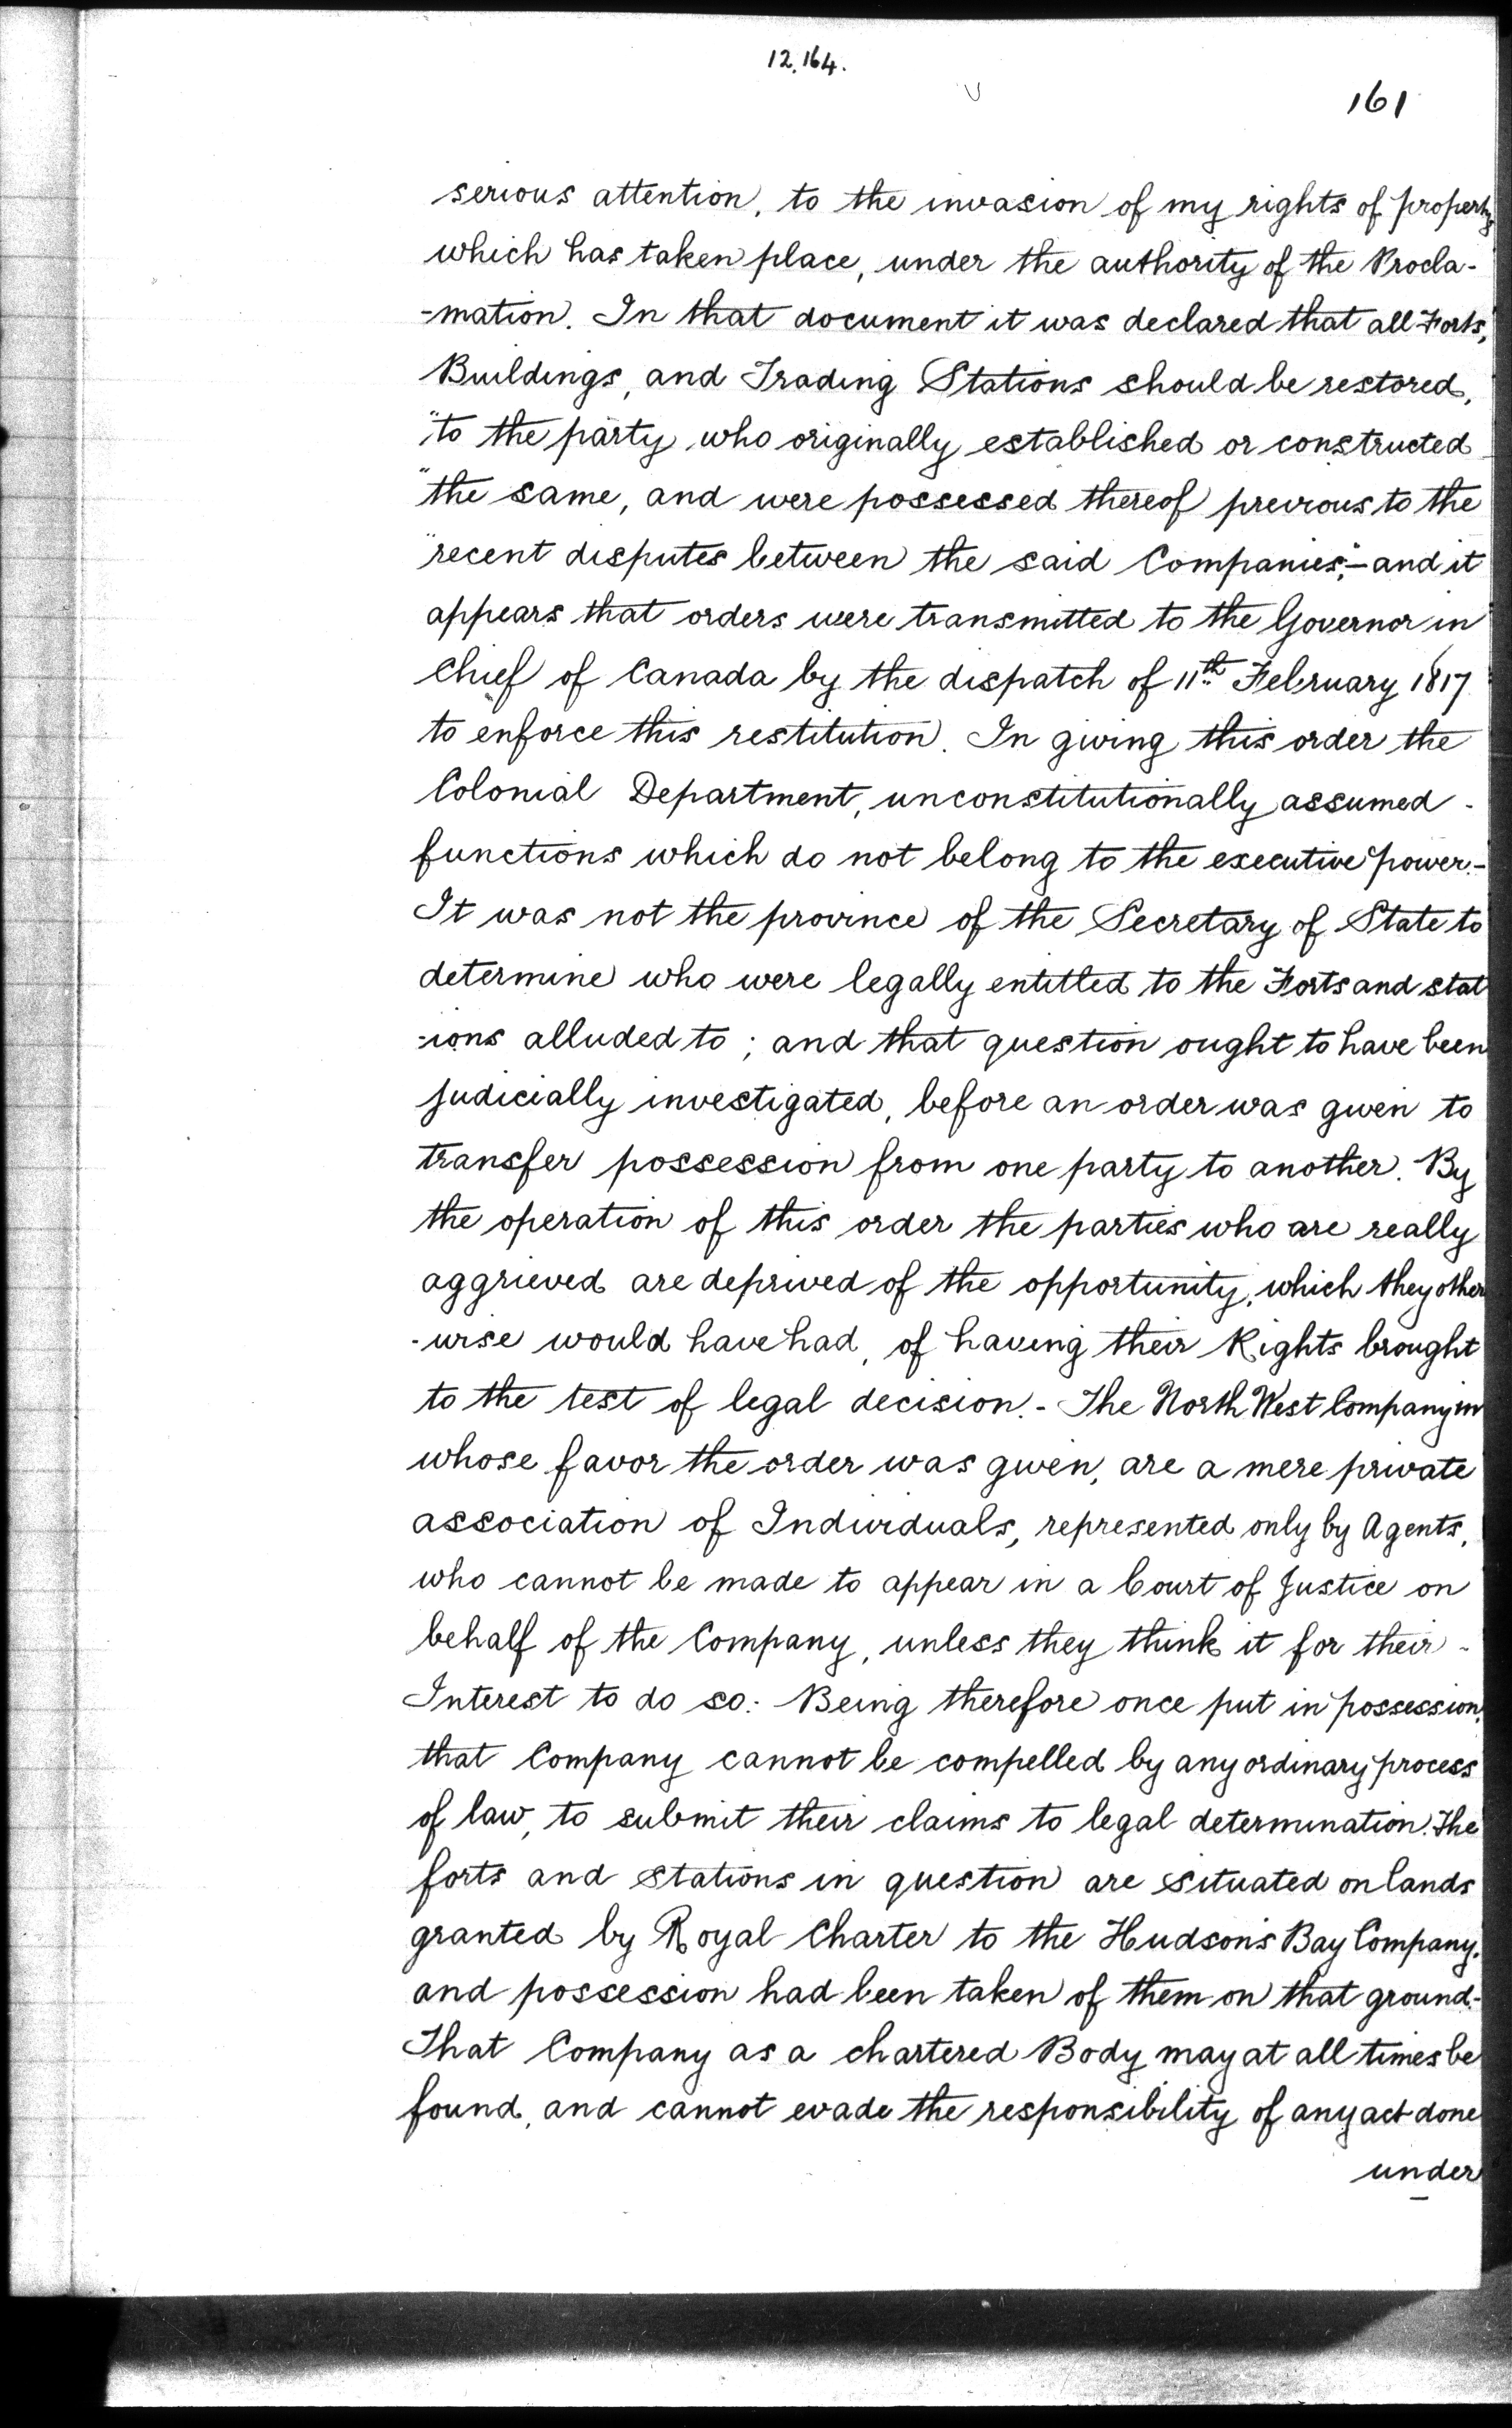 12,164.
161
serious attention, to the invasion of my rights of property
which has taken place, under the authority of the Procla-
-mation. In that document it was declared that all Forts,
Buildings, and Trading Stations should be restored,
"to the party who originally established or constructed
"the same, and were possessed thereof previous to the
"recent disputes between the said Companies;"- and it
appears that orders were transmitted to the Governor in
Chief of Canada by the dispatch of 11th February 1817
to enforce this restitution. In giving this order the
Colonial Department, unconstitutionally assumed -
functions which do not belong to the executive power.-
It was not the province of the Secretary of State to
determine who were legally entitled to the Forts and stat
-ions alluded to; and that question ought to have been
judicially investigated, before an order was given to
transfer possession from one party to another. By
the operation of this order the parties who are really
aggrieved are deprived of the opportunity, which they other
-wise would have had, of having their Rights brought
to the test of legal decision.- The North West Company in
whose favor the order was given, are a mere private
association of Individuals, represented only by Agents,
who cannot be made to appear in a Court of Justice on
behalf of the Company, unless they think it for their -
Interest to do so: Being therefore once put in possession,
that Company cannot be compelled by any ordinary process
of law, to submit their claims to legal determination. The
forts and stations in question are situated on lands
granted by Royal Charter to the Hudson's Bay Company,
and possession had been taken of them on that ground.-
That Company as a chartered Body may at all times be
found, and cannot evade the responsibility of any act done
under